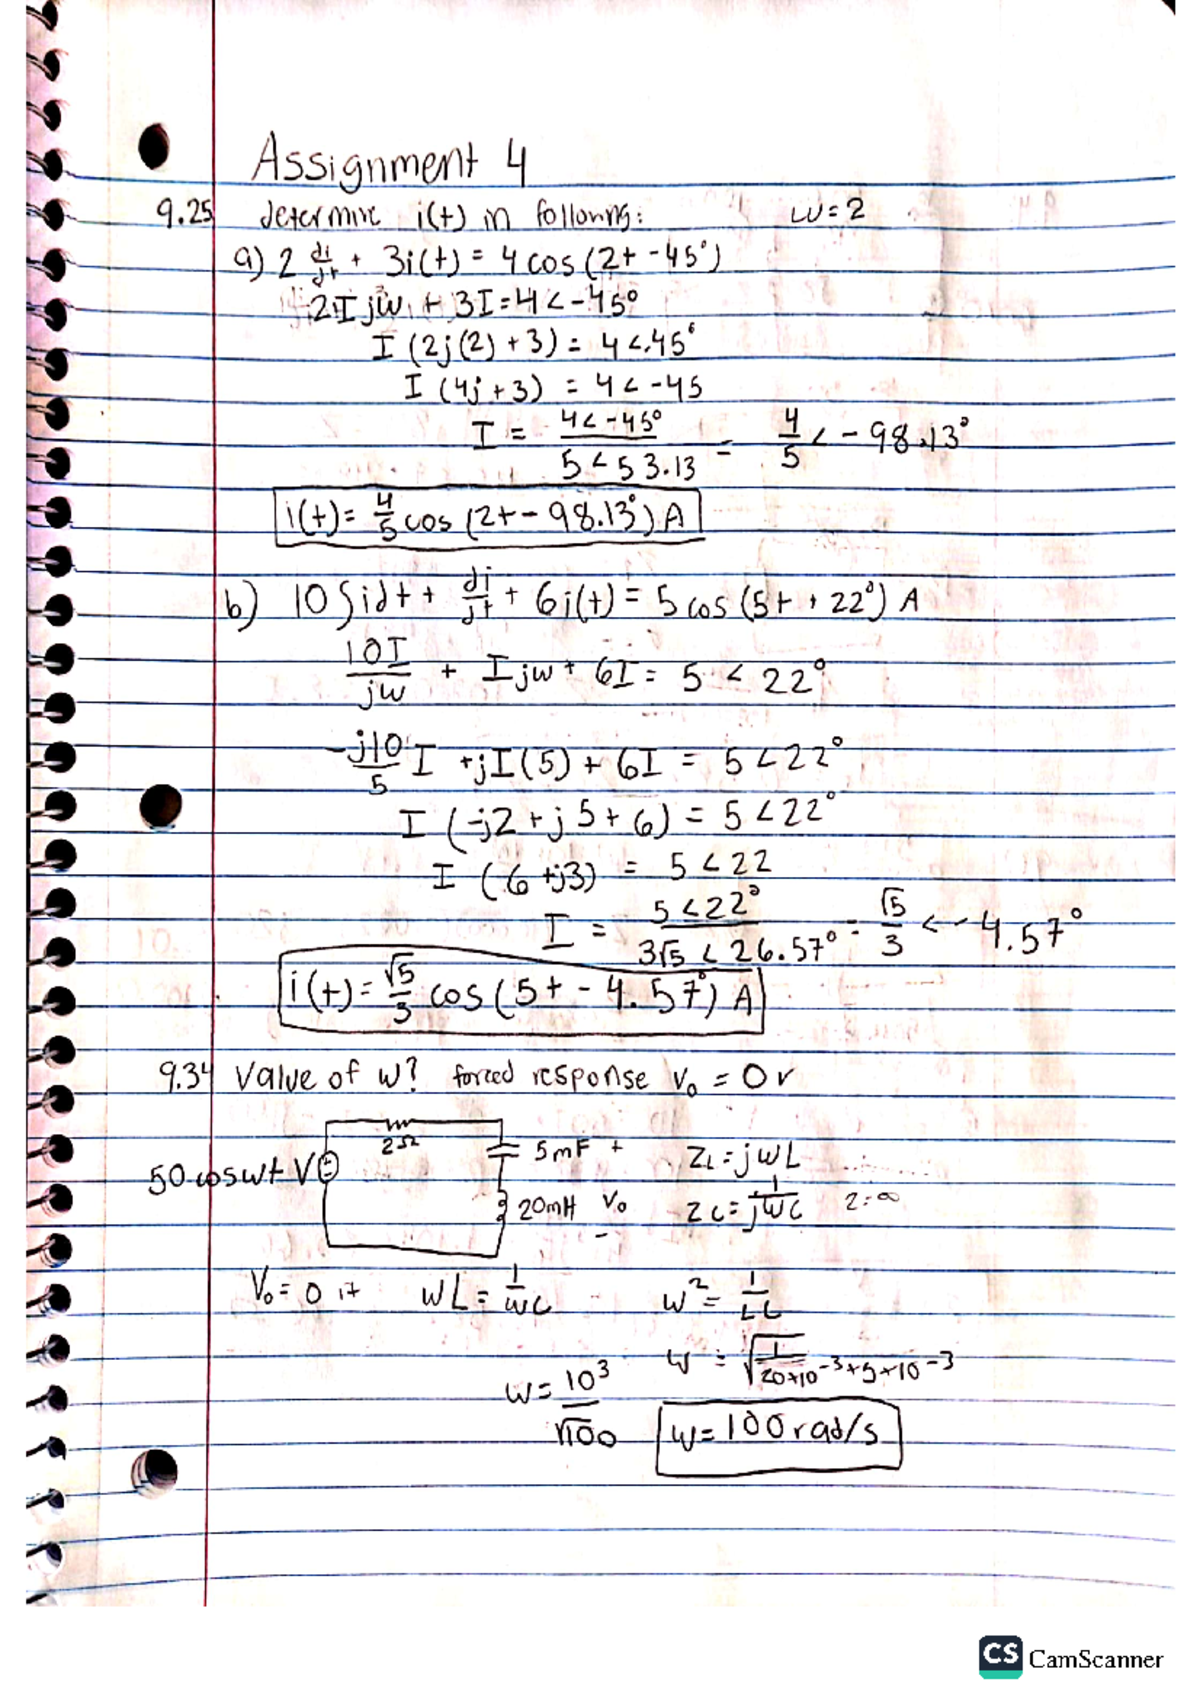 Assignment 4
9.25 determine i(t) in following: ω=2
a) 2 di/dt + 3i(t) = 4 cos (2t -45°)
2I jω + 3I = 4 < -45°
I (2j(2) + 3) = 4 <-45°
I (4j + 3) = 4 < -45
I = 4< -45° / 5 < 53.13 = 4/5 < - 98.13°
i(t) = 4/5 cos (2t - 98.13°) A
b) 10 ∫idt + di/dt + 6i(t) = 5 cos (5t + 22°) A
10I/jω + I jω + 6I = 5 < 22°
-j10/5 I + jI(5) + 6I = 5 < 22°
I (-j2 + j5 + 6) = 5 < 22°
I (6 + j3) = 5 < 22
I = 5 < 22° / 3√5 < 26.57° = √5/3 < - 4.57°
i(t) = √5/3 cos (5t - 4.57°) A
9.34 Value of ω? forced response Vo = 0 v
2Ω
50 cosωt V 5mF + ZL = jωL
20mH Vo - Zc = 1/jωC Z=∞
Vo = 0 if ωL = 1/ωC ω² = 1/LC
ω = √1/20×10-3×5×10-3
ω = 10³/√100 ω = 100 rad/s
CS CamScanner